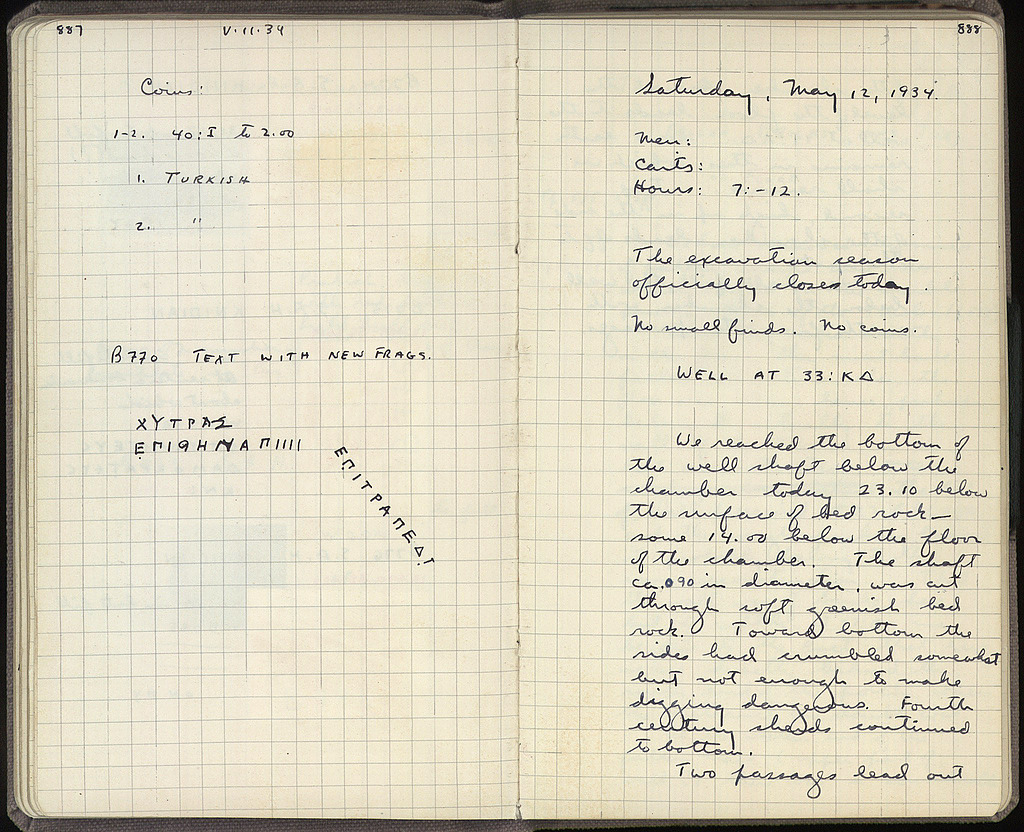 887
V·11·34
Coins:
1-2. 40:I to 2.00
1. TURKISH
2. "
B770 TEXT WITH NEW FRAGS.
ΧΥΤΡΑΣ
ΕΠΙΘΗΝΑΠΙΙΙΙ
ΕΠΙΤΡΑΠΕΔΙ
888
Saturday, May 12, 1934.
Men:
Carts:
Hours: 7:-12.
The excavation season
officially closes today.
No small finds. No coins.
WELL AT 33:ΚΔ
We reached the bottom of
the well shaft below the
chamber today 23.10 below
the surface of bed rock—
some 14.00 below the floor
of the chamber. The shaft
ca. 090 in diameter, was cut
through soft greenish bed
rock. Toward bottom the
sides had crumbled somewhat
but not enough to make
digging dangerous. Fourth
century sherds continued
to bottom.
Two passages lead out